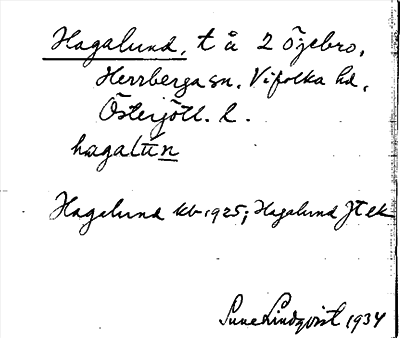 Hagalund, t å 2 Öjebro,
Herrberga sn. Vifolka hd,
Östergötl. l.
hagalun
Hagalund kb 1925; Hagalund Jt ek
Sune Lindqvist 1934